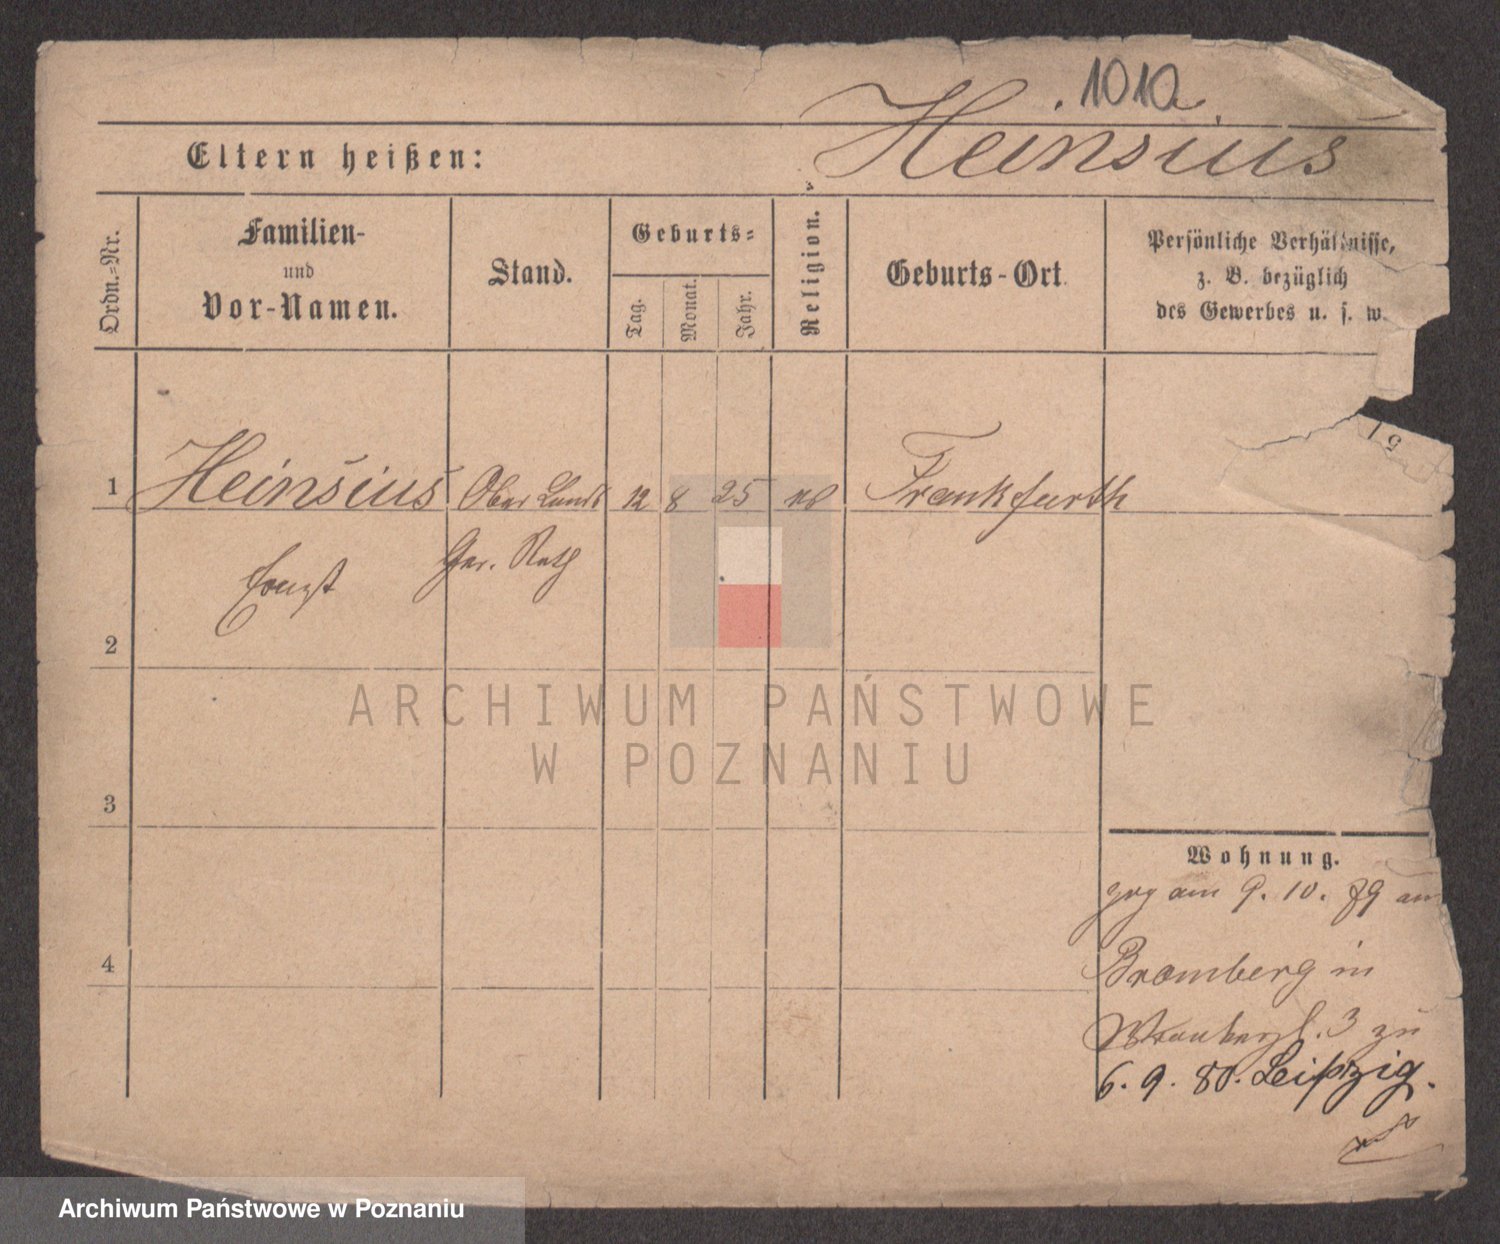 1010
Heinsius
Eltern heißen:
Ordn.=Nr.
Familien-
und
Vor-Namen.
Stand.
Geburts=
Tag.
Monat.
Jahr.
Religion.
Geburts-Ort
Persönliche Verhältnisse,
z. B. bezüglich
des Gewerbes u. s. w.
19
1 Heinsius Ober Lands 12 8 25 Frankfurth
Ernst Ger. Rath
2
3
4
Wohnung.
zog am 9. 10. 79 aus
Bromberg in
3 zu
6. 9. 80. Leipzig.
ARCHIWUM PAŃSTWOWE
W POZNANIU
Archiwum Państwowe w Poznaniu